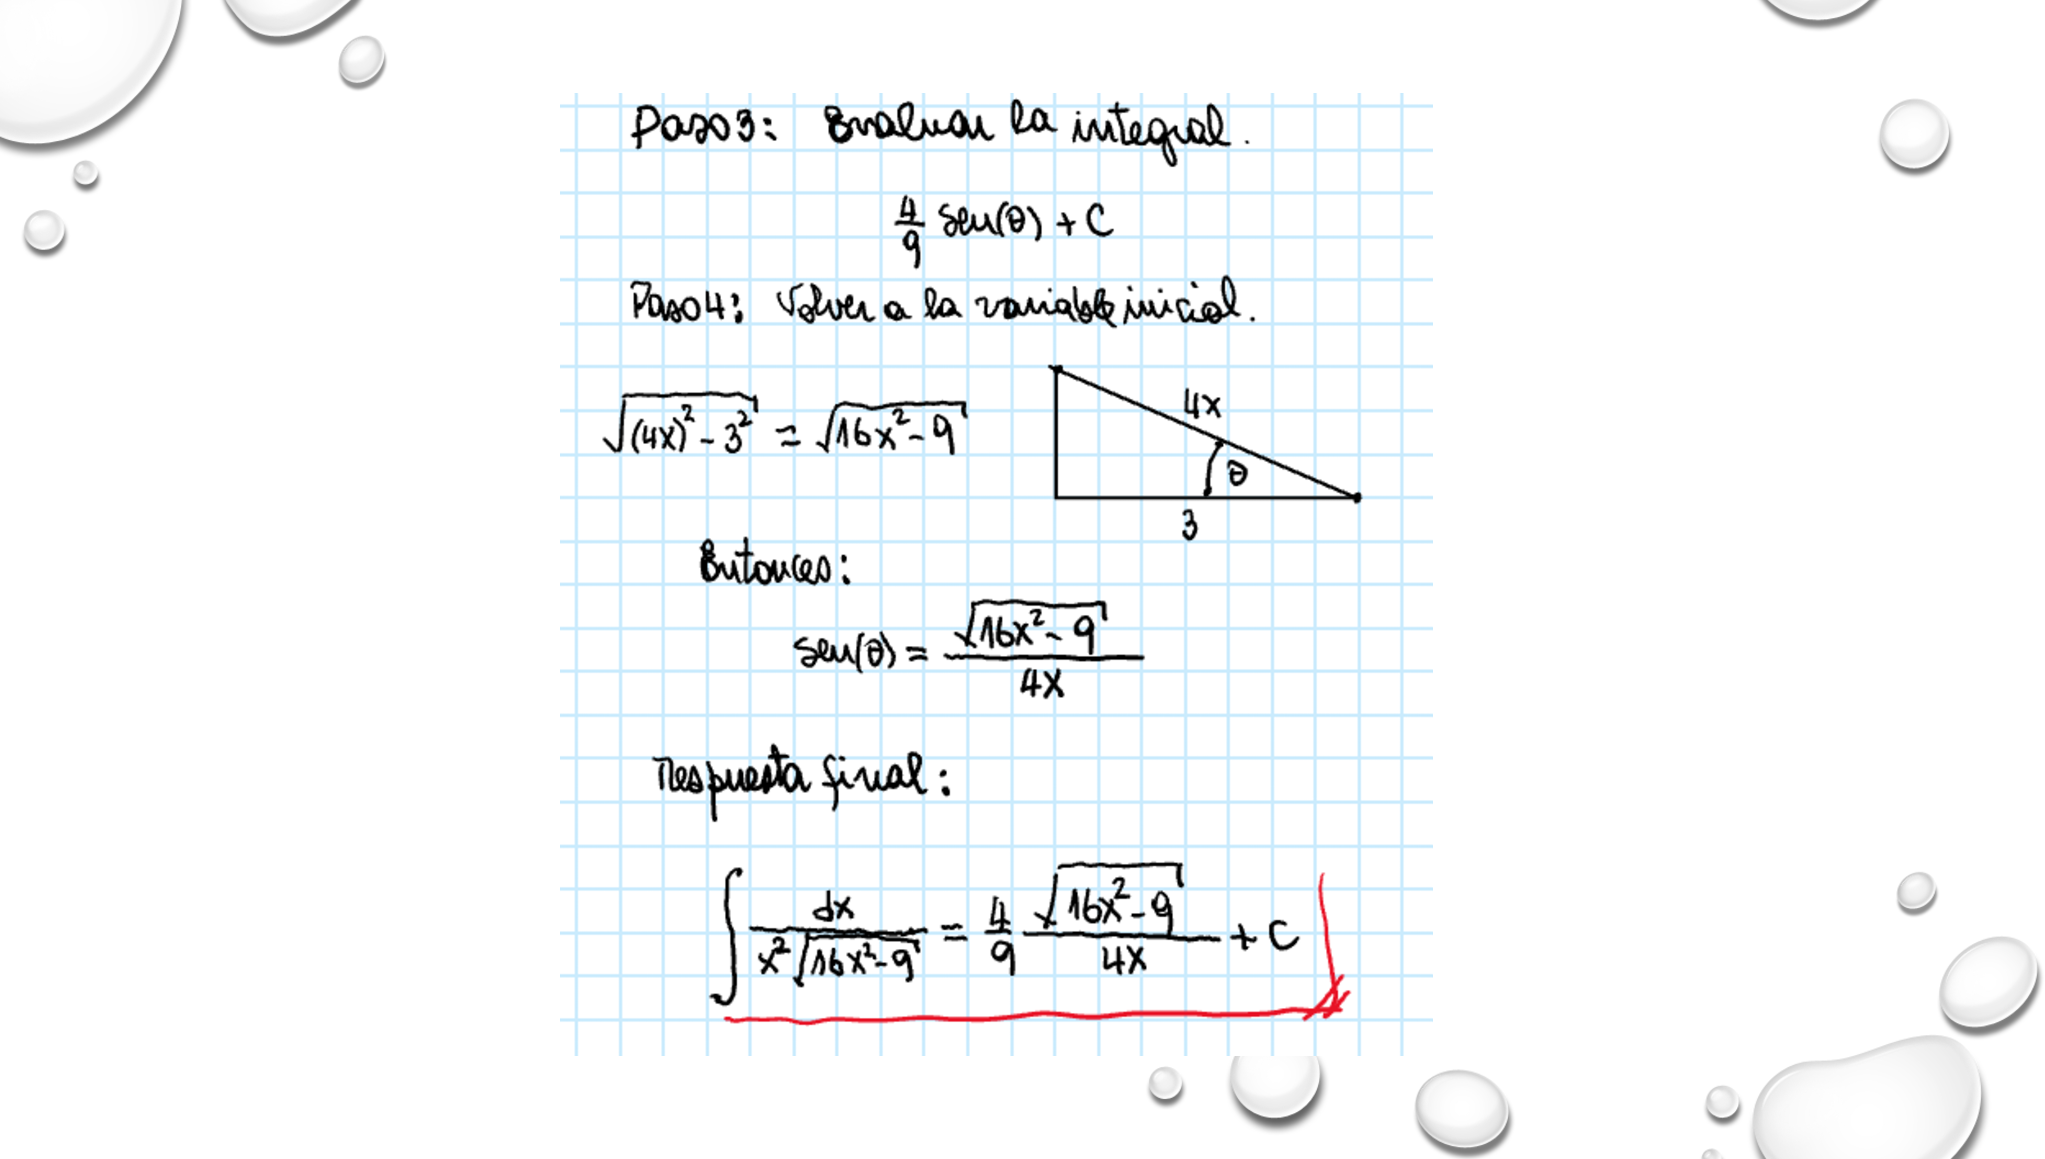 Paso3: Evaluar la integral.
4/9 sen(θ) + C
Paso4: Volver a la variable inicial.
√((4x)² - 3²) = √(16x² - 9)
4x
θ
3
Entonces:
sen(θ) = √(16x² - 9) / 4x
Respuesta final:
∫ dx / (x² √(16x² - 9)) = 4/9 √(16x² - 9) / 4x + C